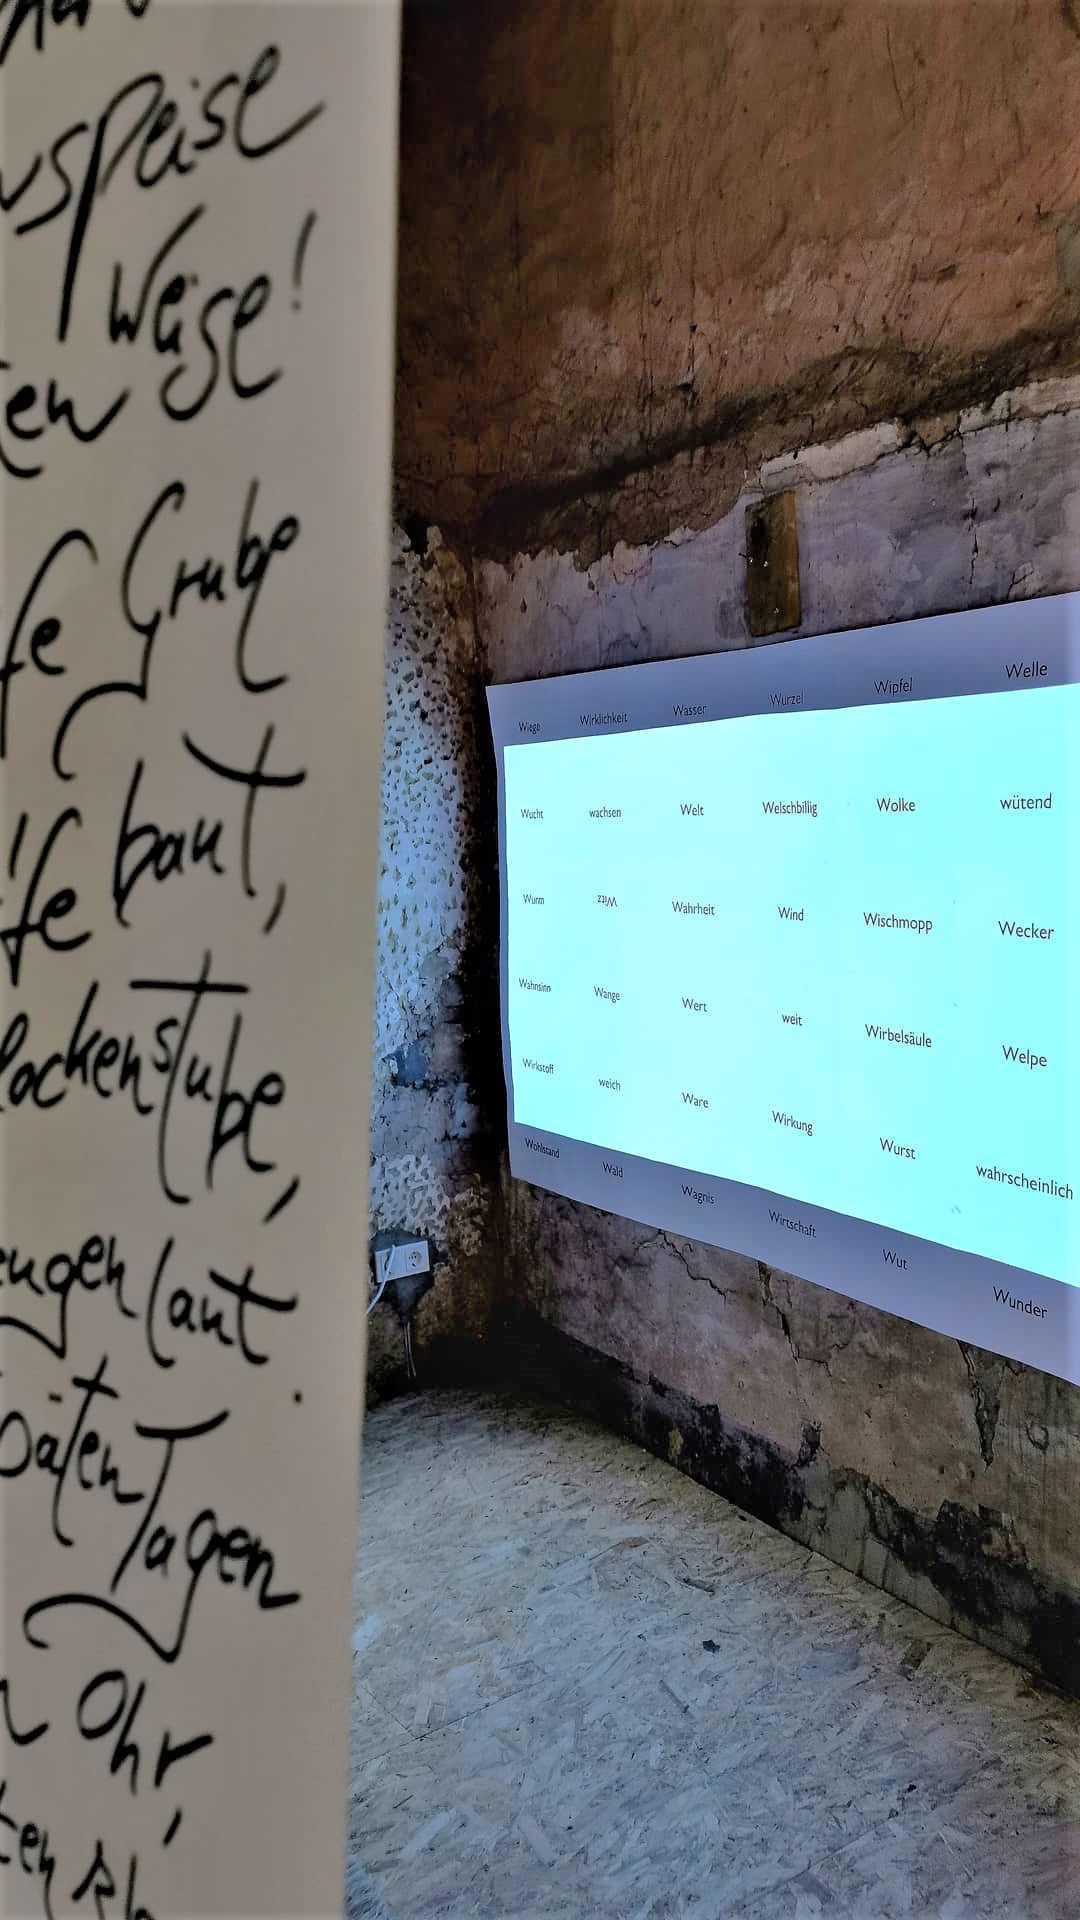 speise
Weise!
Grube
baut,
lockenstube,
laut.
Tagen
Ohr,
Wiege Wirklichkeit Wasser Wurzel Wipfel Welle
Wucht wachsen Welt Welschbillig Wolke wütend
Wurm Witz Wahrheit Wind Wischmopp Wecker
Wahnsinn Wange Wert weit Wirbelsäule Welpe
Wirkstoff weich Ware Wirkung Wurst wahrscheinlich
Wohlstand Wald Wagnis Wirtschaft Wut Wunder